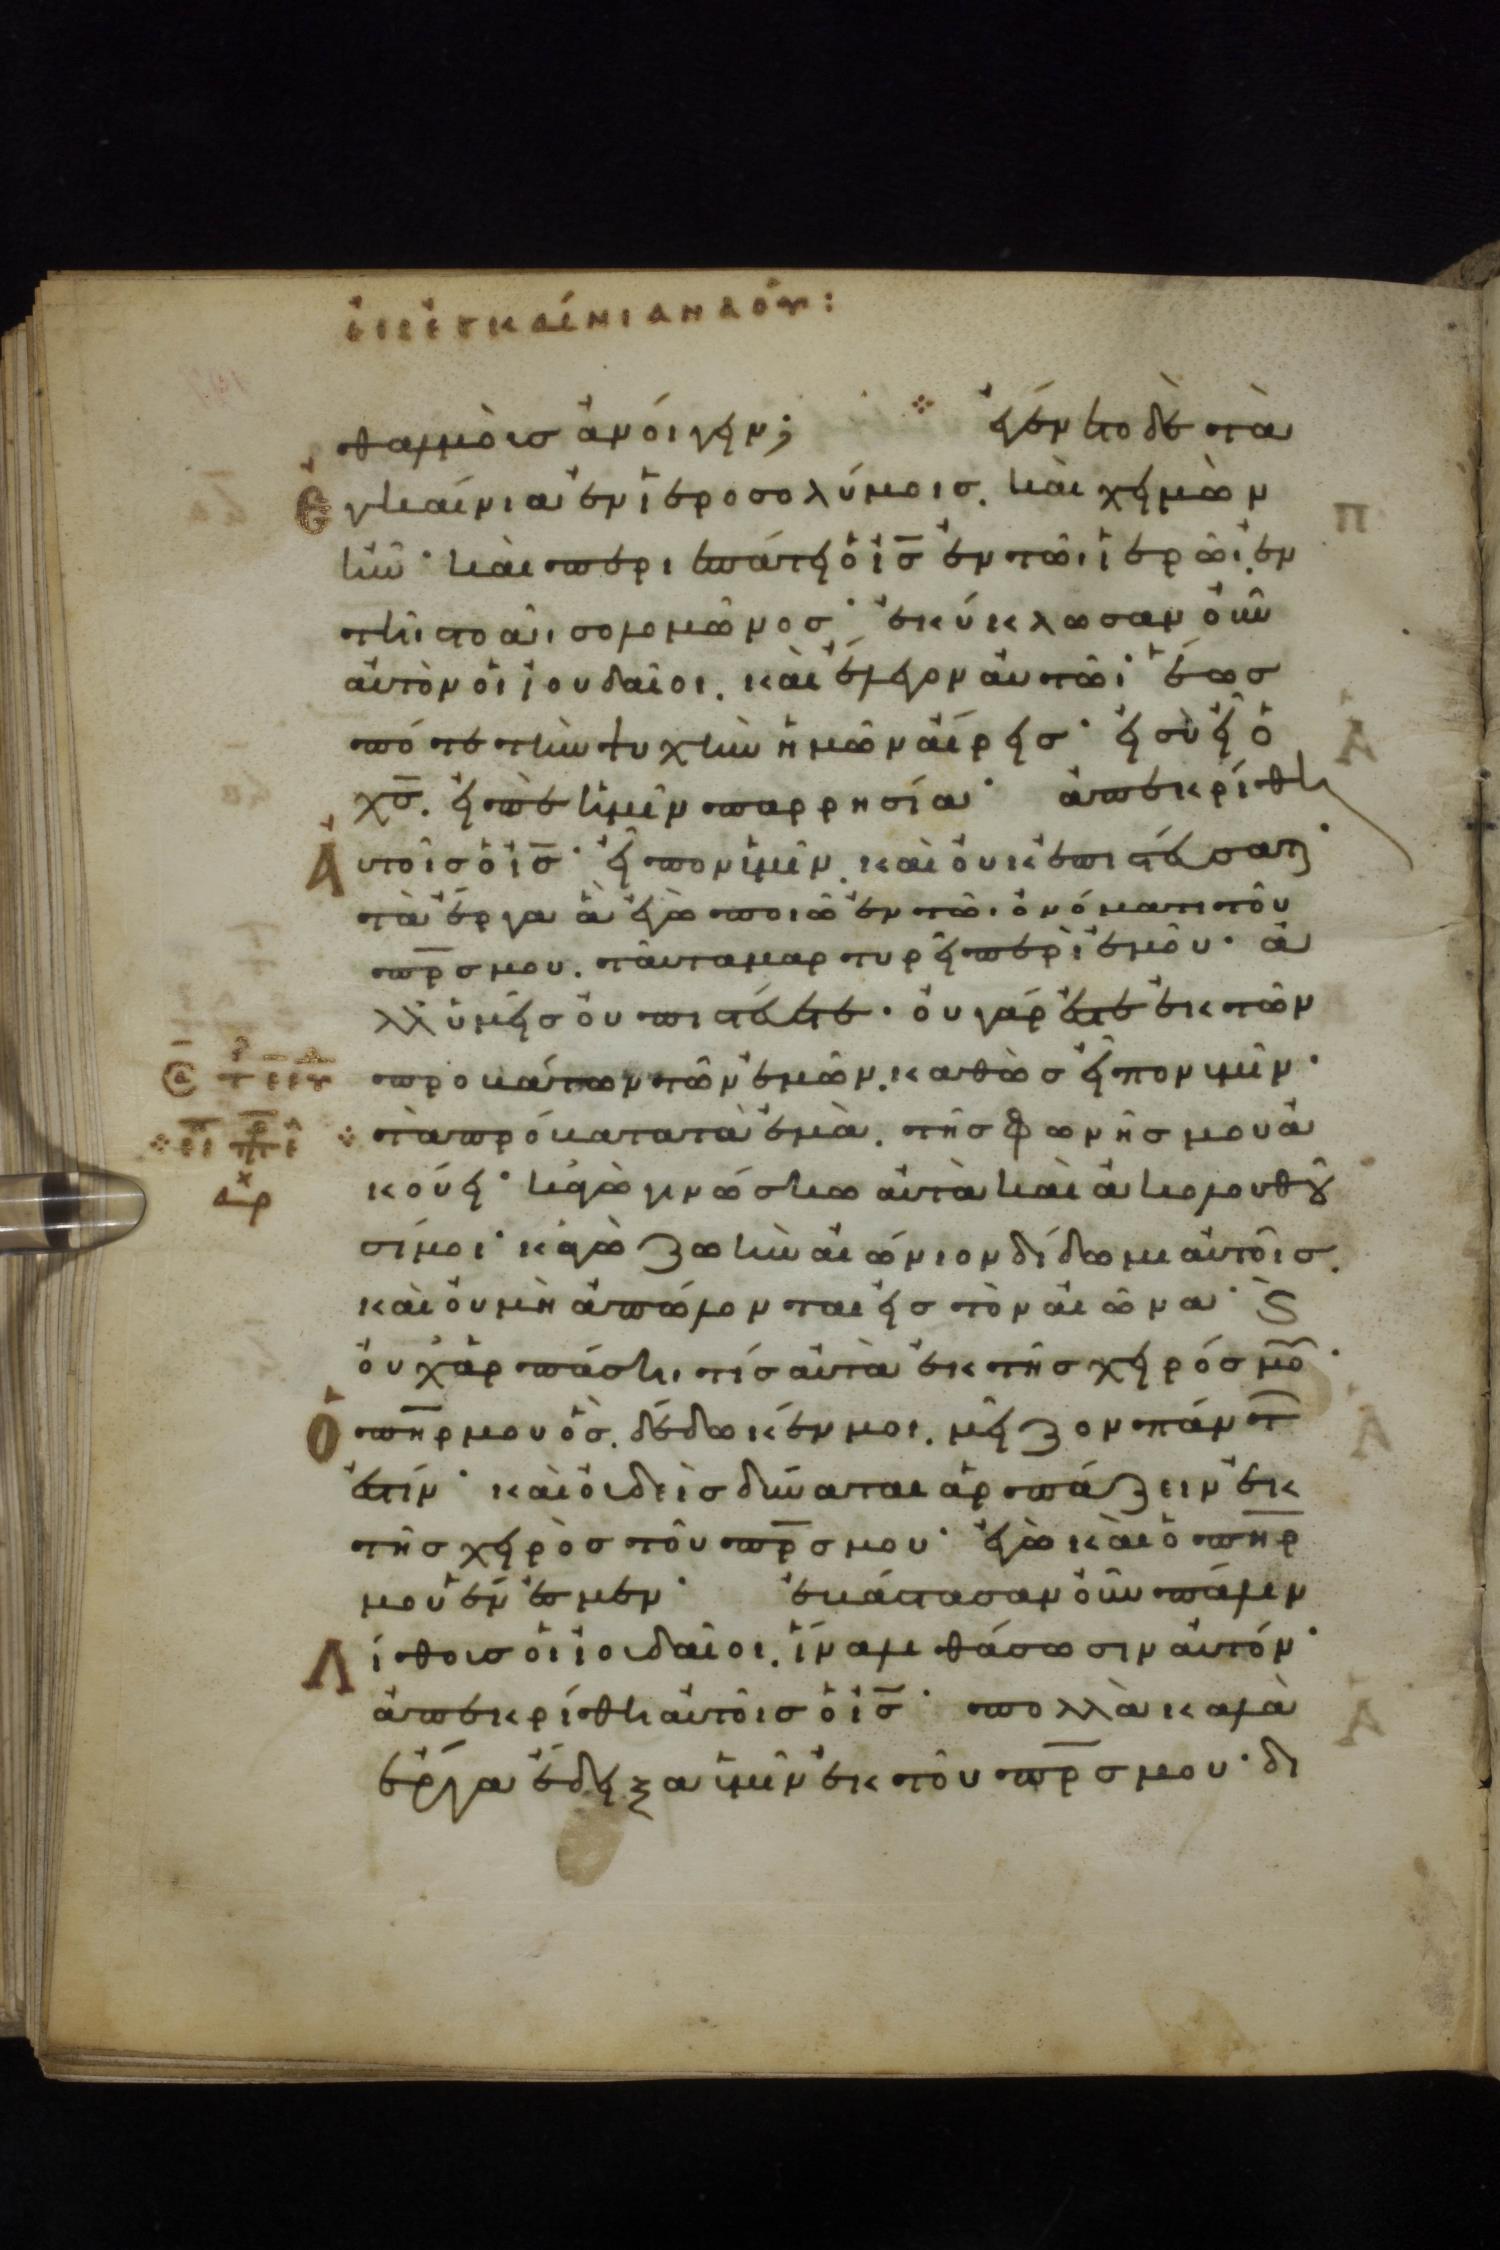 εἰς ἐγκαίνια ναοῦ:
θαλμοὺς ἀνοίγειν; ἐγένετο δὲ τὰ
Ἐγκαίνια ἐν ἱεροσολύμοις. καὶ χειμὼν
ἦν· καὶ περιεπάτει ὁ ις̅ ἐν τῶι ἱερῶι. ἐν
τῆι στοᾶι σολομῶνος· ἐκύκλωσαν οὖν
αὐτὸν οἱ ἰουδαῖοι. καὶ ἔλεγον αὐτῶι· ἕως
πότε τὴν ψυχὴν ἡμῶν αἴρεις· εἰ σὺ εἶ ὁ
χς̅. εἰπὲ ἡμῖν παρρησία· ἀπεκρίθη
Αὐτοῖς ὁ ις̅· εἶπον ὑμῖν. καὶ οὐκ ἐπιστεύσατε·
τὰ ἔργα ἃ ἐγὼ ποιῶ ἐν τῶι ὀνόματι τοῦ
πρ̅ς μου. ταῦτα μαρτυρεῖ περὶ ἐμοῦ· ἀ
λλ' ὑμεῖς οὐ πιστεύετε· οὐ γάρ ἐστε ἐκ τῶν
προβάτων τῶν ἐμῶν. καθὼς εἶπον ὑμῖν·
τὰ πρόβατα τὰ ἐμὰ. τῆς φωνῆς μου ἀ
κούει· κἀγὼ γινώσκω αὐτὰ καὶ ἀκολουθοῦ
σί μοι· κἀγὼ ζωὴν αἰώνιον δίδωμι αὐτοῖς.
καὶ οὐ μὴ ἀπώλονται εἰς τὸν αἰῶνα· ϗ̀
οὐχ ἁρπάσηι τίς αὐτὰ ἐκ τῆς χειρός μου·
Ὁ πη̅ρ μου ὃς. δέδωκέν μοι. μεῖζον πάντ̅
ἐστίν· καὶ οὐδεὶς δύναται ἁρπάζειν ἐκ
τῆς χειρὸς τοῦ πρ̅ς μου· ἐγὼ καὶ ὁ πη̅ρ
μου ἕν ἐσμεν· ἐβάστασαν οὖν πάλιν
Λίθους οἱ ἰουδαῖοι. ἵνα λιθάσωσιν αὐτόν·
ἀπεκρίθη αὐτοῖς ὁ ις̅· πολλὰ καλὰ
ἔργα ἔδειξα ὑμῖν ἐκ τοῦ πρ̅ς μου· δι